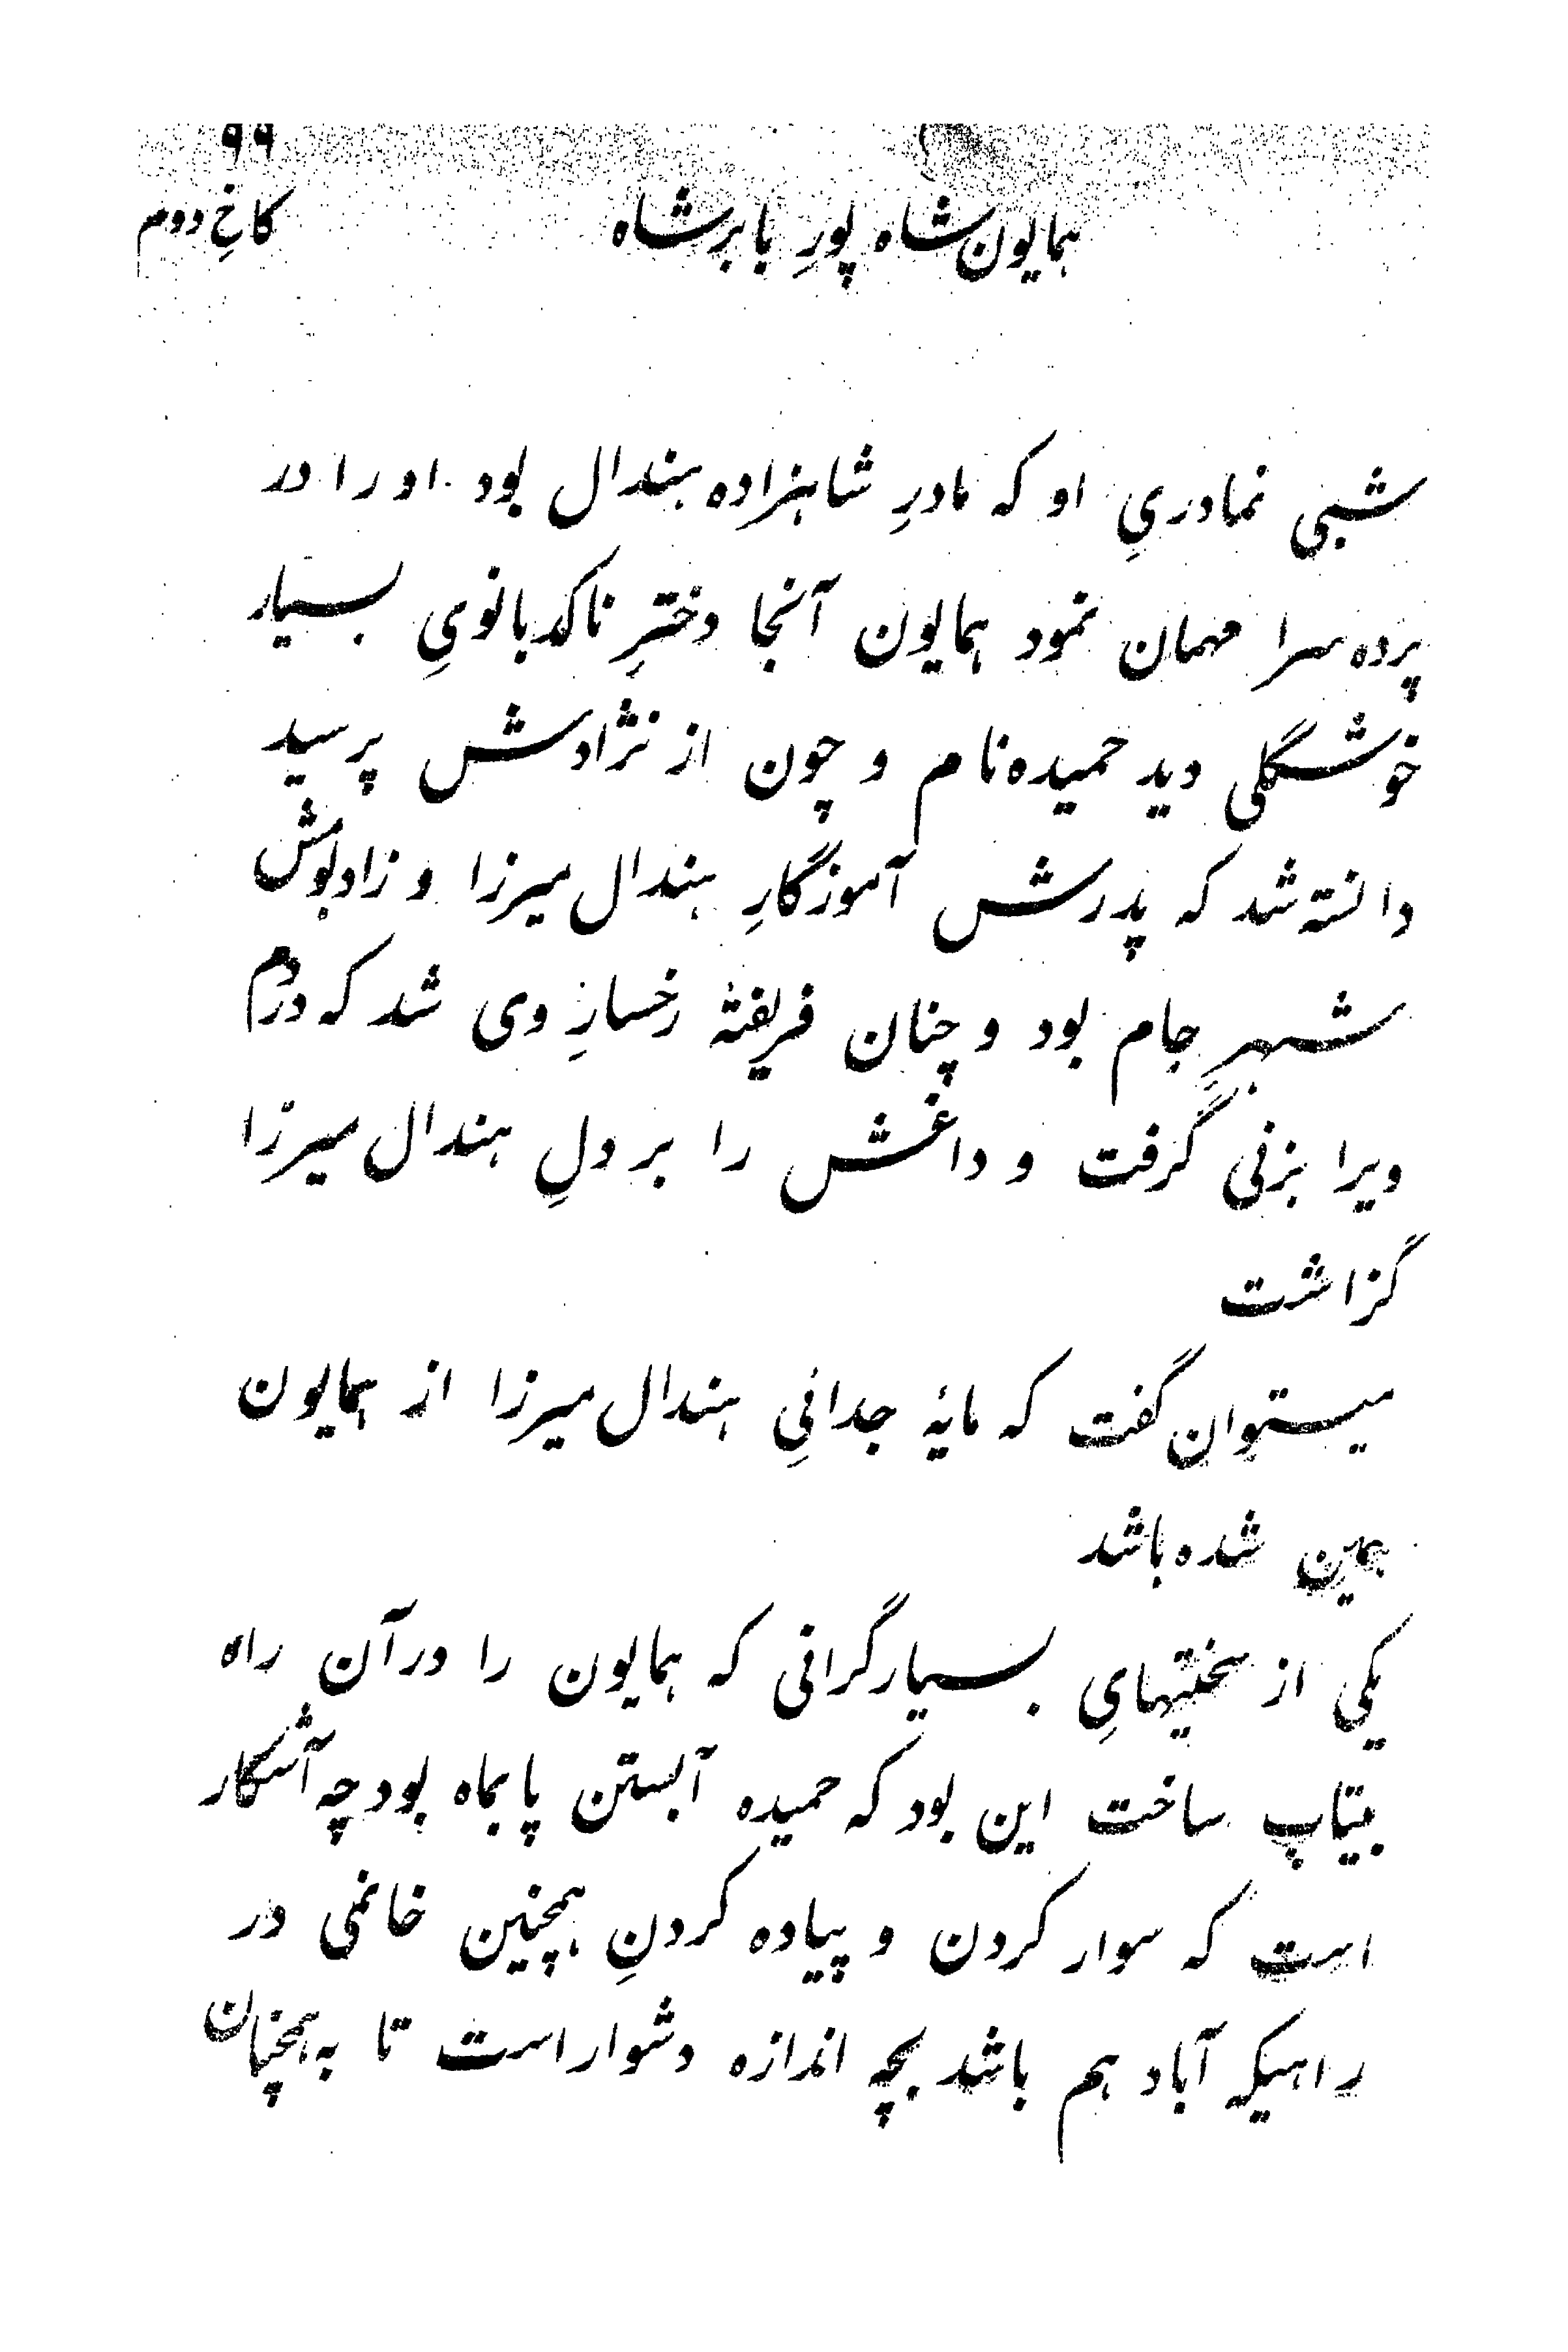 ۹۹
همایون‌شاه پورِ بابرشاه کاخِ دوم
شبی نمادریِ او که مادرِ شاهزاده هندال بود او را در
پرده سرا مهمان نمود همایون آنجا دخترِ ناکدبانویِ بسیار
خوشگلی دید حمیده نام و چون از نژادش پرسید
دانسته شد که پدرش آموزگارِ هندال میرزا و زادبومش
شهرِ جام بود و چنان فریفتهٔ رخسارِ وی شد که در دم
ویرا بزنی گرفت و داغش را بر دلِ هندال میرزا
گزاشت
میستوان گفت که مایهٔ جدائیِ هندال میرزا از همایون
همین شده باشد
یکی از سختیهایِ بسیار گرانی که همایون را در آن راه
بیتاب ساخت این بود که حمیده آبستن پا بماه بود چه آشکار
است که سوار کردن و پیاده کردنِ همچنین خانمی در
راهیکه آباد هم باشد بچه اندازه دشوار است تا به همچنان